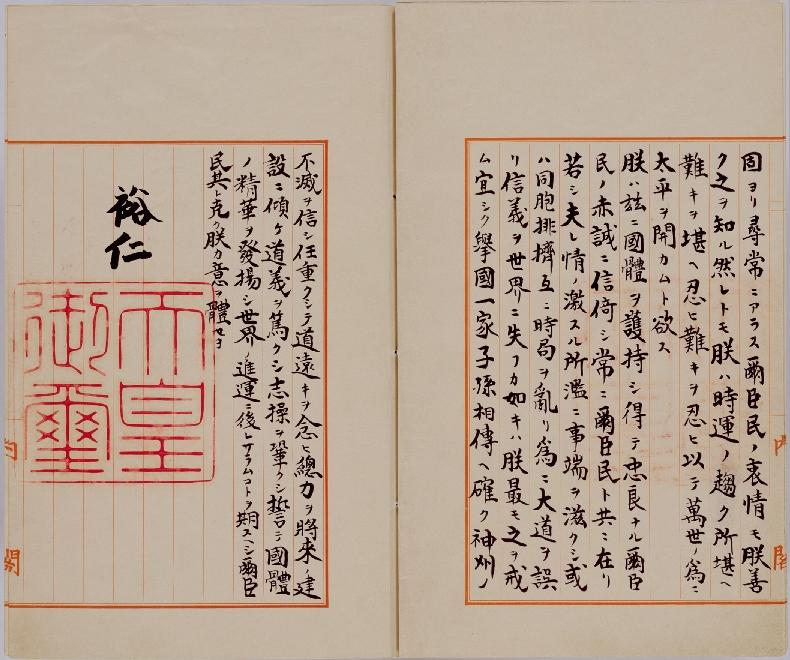 固ヨリ尋常ニアラス爾臣民ノ衷情モ朕善
ク之ヲ知ル然レトモ朕ハ時運ノ趨ク所堪ヘ
難キヲ堪ヘ忍ヒ難キヲ忍ヒ以テ萬世ノ爲ニ
太平ヲ開カムト欲ス
朕ハ茲ニ國體ヲ護持シ得テ忠良ナル爾臣
民ノ赤誠ニ信倚シ常ニ爾臣民ト共ニ在リ
若シ夫レ情ノ激スル所濫ニ事端ヲ滋クシ或
ハ同胞排擠互ニ時局ヲ亂リ爲ニ大道ヲ誤
リ信義ヲ世界ニ失フカ如キハ朕最モ之ヲ戒
ム宜シク擧國一家子孫相傳ヘ確ク神州ノ
內閣
不滅ヲ信シ任重クシテ道遠キヲ念ヒ總力ヲ將來ノ建
設ニ傾ケ道義ヲ篤クシ志操ヲ鞏クシ誓テ國體
ノ精華ヲ發揚シ世界ノ進運ニ後レサラムコトヲ期スヘシ爾臣
民其レ克ク朕カ意ヲ體セヨ
裕仁
天皇
御璽
內閣